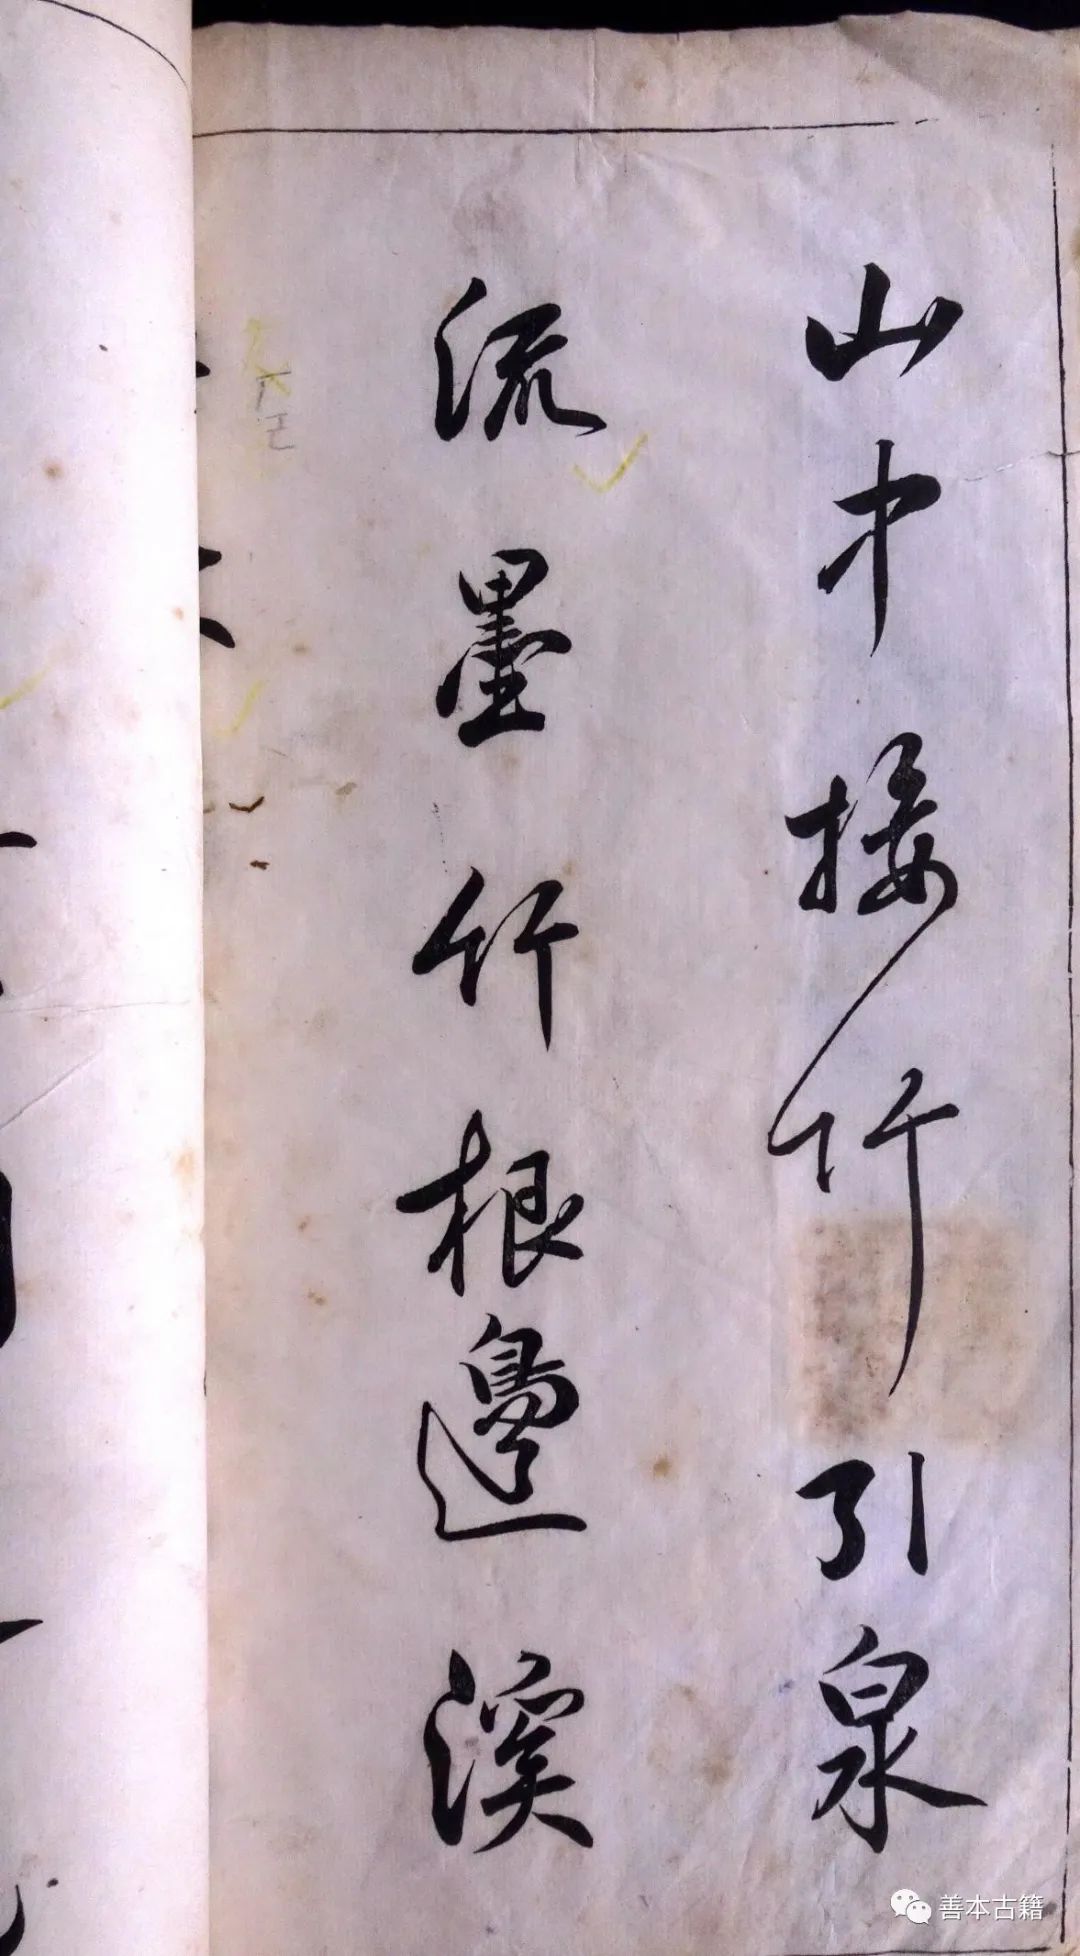 山中接竹引泉
流墨竹根邊溪
善本古籍